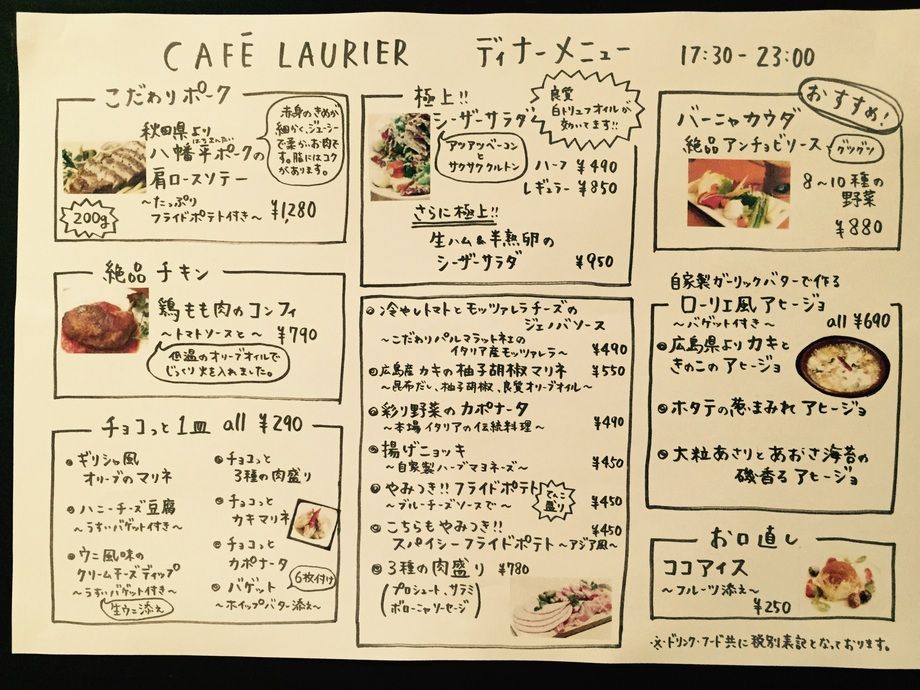 CAFÉ LAURIER ディナーメニュー 17:30-23:00
こだわりポーク
秋田県より
八幡平ポークの
肩ロースソテー
〜たっぷり
フライドポテト付き〜 ¥1,280
200g
赤身のきめが
細かく、ジューシー
で柔かいお肉で
す。脂にはコク
があります。
絶品チキン
鶏もも肉のコンフィ
〜トマトソースと〜 ¥790
低温のオリーブオイルで
じっくり火を入れました。
チョコっと1皿 all ¥290
ギリシャ風
オリーブのマリネ
ハニーチーズ豆腐
〜うすいバゲット付き〜
ウニ風味の
クリームチーズディップ
〜うすいバゲット付き〜
生ウニ添え
チョコっと
3種の肉盛り
チョコっと
カキマリネ
チョコっと
カポナータ
バゲット
6枚付け
〜ホイップバター添え〜
極上!!
シーザーサラダ
良質
白トリュフオイルが
効いてます!!
アツアツベーコン
と
サクサククルトン
ハーフ ¥490
レギュラー ¥850
さらに極上!!
生ハム&半熟卵の
シーザーサラダ ¥950
冷やしトマトとモッツァレラチーズの
ジェノバソース
〜こだわりパルマラット社の
イタリア産モッツァレラ〜 ¥490
広島産カキの柚子胡椒マリネ ¥550
〜昆布だし、柚子胡椒、良質オリーブオイル〜
彩り野菜のカポナータ
〜本場イタリアの伝統料理〜 ¥490
揚げニョッキ
〜自家製ハーブマヨネーズ〜 ¥450
やみつき!!フライドポテト
〜ブルーチーズソースで〜 ¥450
てんこ
盛り
こちらもやみつき!! ¥450
スパイシーフライドポテト〜アジア風〜
3種の肉盛り ¥780
(プロシュート、サラミ
ボローニャソーセージ)
おすすめ!
バーニャカウダ
絶品アンチョビソース
グツグツ
8〜10種の
野菜
¥880
自家製ガーリックバターで作る
ローリエ風アヒージョ
〜バゲット付き〜 all ¥690
広島県よりカキと
きのこのアヒージョ
ホタテの葱まみれアヒージョ
大粒あさりとあおさ海苔の
磯香るアヒージョ
お口直し
ココアイス
〜フルーツ添え〜
¥250
※ドリンク・フード共に税別表記となっております。